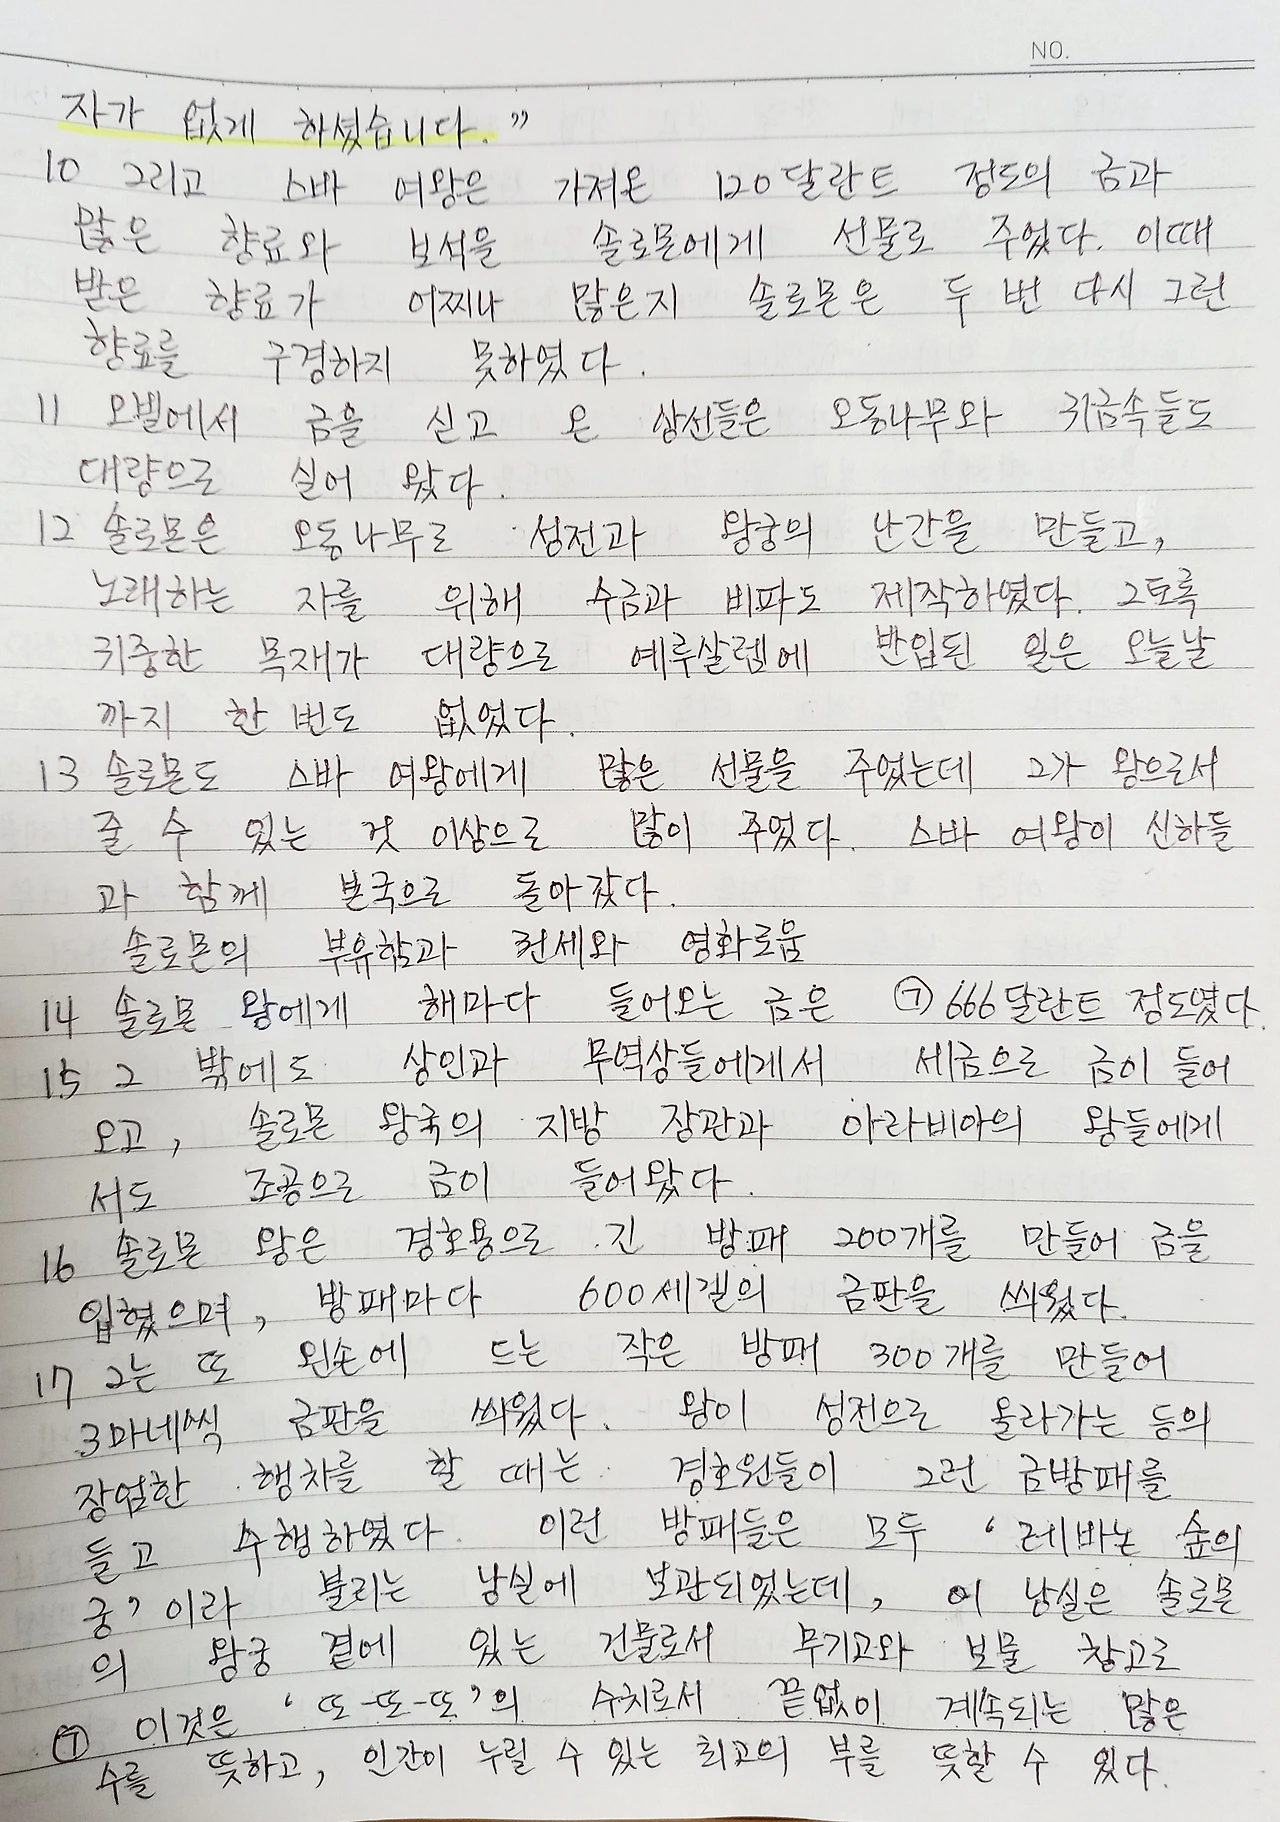 NO.
자가 없게 하셨습니다.”
10 그리고 스바 여왕은 가져온 120달란트 정도의 금과
많은 향료와 보석을 솔로몬에게 선물로 주었다. 이때
받은 향료가 어찌나 많은지 솔로몬은 두 번 다시 그런
향료를 구경하지 못하였다.
11 오빌에서 금을 싣고 온 상선들은 오동나무와 귀금속들도
대량으로 실어 왔다.
12 솔로몬은 오동나무로 성전과 왕궁의 난간을 만들고,
노래하는 자를 위해 수금과 비파도 제작하였다. 그토록
귀중한 목재가 대량으로 예루살렘에 반입된 일은 오늘날
까지 한 번도 없었다.
13 솔로몬도 스바 여왕에게 많은 선물을 주었는데 그가 왕으로서
줄 수 있는 것 이상으로 많이 주었다. 스바 여왕이 신하들
과 함께 본국으로 돌아갔다.
솔로몬의 부유함과 권세와 영화로움
14 솔로몬 왕에게 해마다 들어오는 금은 ㉠ 666달란트 정도였다.
15 그 밖에도 상인과 무역상들에게서 세금으로 금이 들어
오고, 솔로몬 왕국의 지방 장관과 아라비아의 왕들에게
서도 조공으로 금이 들어왔다.
16 솔로몬 왕은 경호용으로 긴 방패 200개를 만들어 금을
입혔으며, 방패마다 600세겔의 금판을 씌웠다.
17 그는 또 왼손에 드는 작은 방패 300개를 만들어
3마네씩 금판을 씌웠다. 왕이 성전으로 올라가는 등의
장엄한 행차를 할 때는 경호원들이 그런 금방패를
들고 수행하였다. 이런 방패들은 모두 ‘레바논 숲의
궁’이라 불리는 낭실에 보관되었는데, 이 낭실은 솔로몬
의 왕궁 곁에 있는 건물로서 무기고와 보물 창고로
㉠ 이것은 ‘또-또-또’의 수치로서 끝없이 계속되는 많은
수를 뜻하고, 인간이 누릴 수 있는 최고의 부를 뜻할 수 있다.